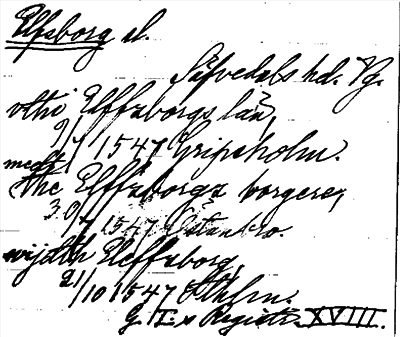 Elfsborg sl.
Säfvedals hd. Vg.
vthi Elffzborgs län,
9/7 1547 Gripsholm.
medt
the Elffzborga borgere,
30/7 1547
wijdth Eleffzborg,
21/10 1547 Sthlm.
G. I:s Registr. XVIII.